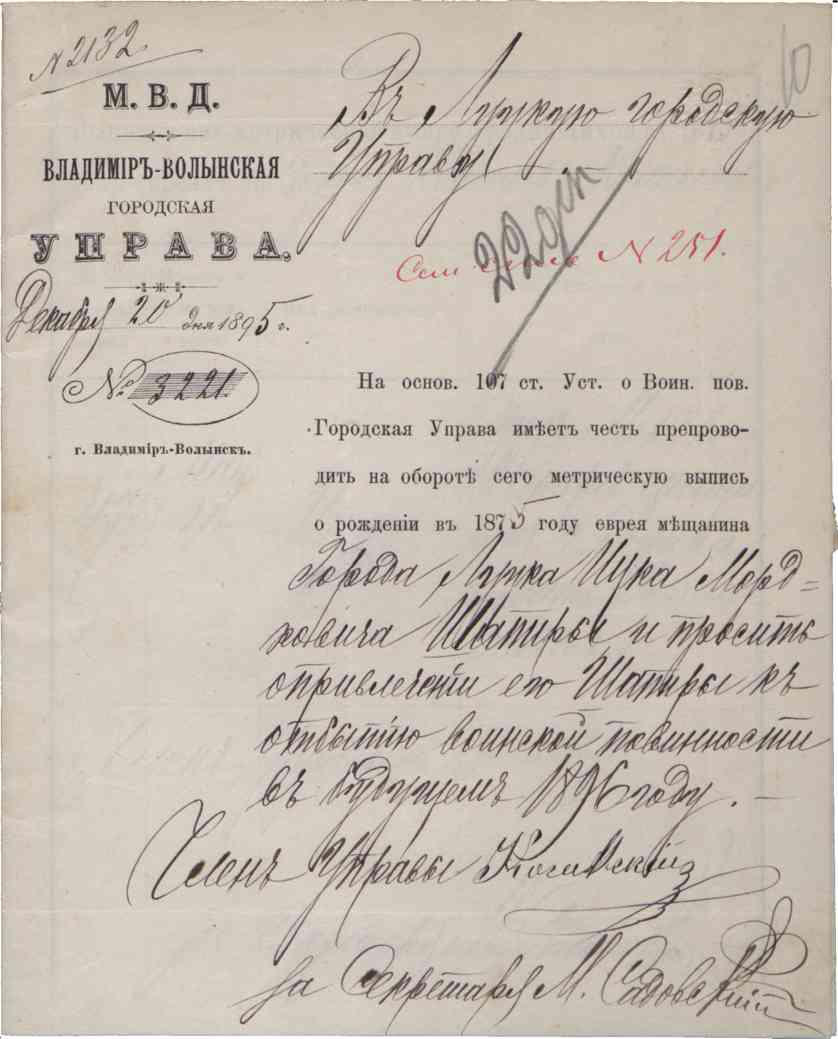 N 2132
10
М. В. Д.
ВЛАДИМІРЪ-ВОЛЫНСКАЯ
ГОРОДСКАЯ
УПРАВА.
Декабря 20 дня 1895 г.
№ 3221
г. Владиміръ-Волынскъ.
Въ Луцкую городскую
Управу
22 дек
N 251.
На основ. 107 ст. Уст. о Воин. пов.
Городская Управа имѣетъ честь препрово-
дить на оборотѣ сего метрическую выпись
о рожденіи въ 1875 году еврея мѣщанина
Города Луцка Ицка Морд=
ховича Шапиры и просить
о привлеченіи его Шапиры къ
отбытію воинской повинности
въ будущемъ 1896 году. –
Членъ Управы
за Секретаря М. Садовскій